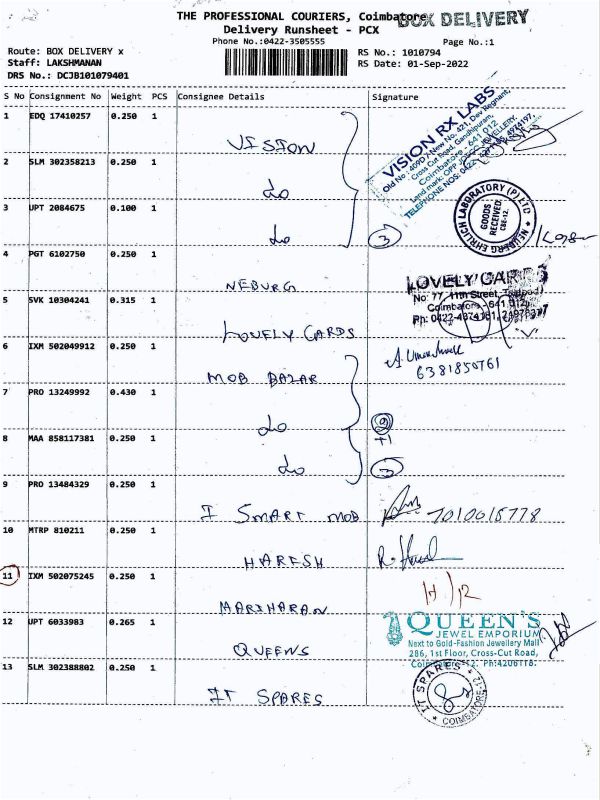 THE PROFESSIONAL COURIERS, Coimbatore
BOX DELIVERY
Delivery Runsheet - PCX
Phone No.:0422-3505555
Page No.:1
Route: BOX DELIVERY x
RS No.: 1010794
Staff: LAKSHMANAN
RS Date: 01-Sep-2022
DRS No.: DCJB101079401
S No Consignment No Weight PCS Consignee Details Signature
1 EDQ 17410257 0.250 1 VISION
VISION RX LABS
Old No : 409D / New No. 421, Dev Regnant,
Cross Cut Road, Gandhipuram,
Coimbatore - 641 012
Land mark: OPP JEWELLERY.
TELEPHONE NOS: 0422
2 SLM 302358213 0.250 1 do
3 UPT 2084675 0.100 1 do
3
NEUBERG EHRLICH LABORATORY (P) LTD
GOODS
RECEIVED
CBE-12.
4 PGT 6102750 0.250 1 NEBURG
LOVELY CARDS
No: 77, 11th Street, Tatabad
Coimbatore - 641 012
Ph: 0422-4374161,
5 SVK 10304241 0.315 1 LOVELY CARDS
6 IXM 502049912 0.250 1 MOB BAZAR
6381850761
7 PRO 13249992 0.430 1 do
8 MAA 858117381 0.250 1 do
3
9 PRO 13484329 0.250 1 I SMART MOB
7010615778
10 MTRP 810211 0.250 1 HARESH
11 IXM 502075245 0.250 1 MARIHARAN
12 UPT 6033983 0.265 1 QUEENS
QUEEN'S
JEWEL EMPORIUM
Next to Gold-Fashion Jewellery Mall
286, 1st Floor, Cross-Cut Road,
Coimbatore-12. Ph:4206118.
13 SLM 302388802 0.250 1 IT SPARES
IT SPARES
COIMBATORE-12